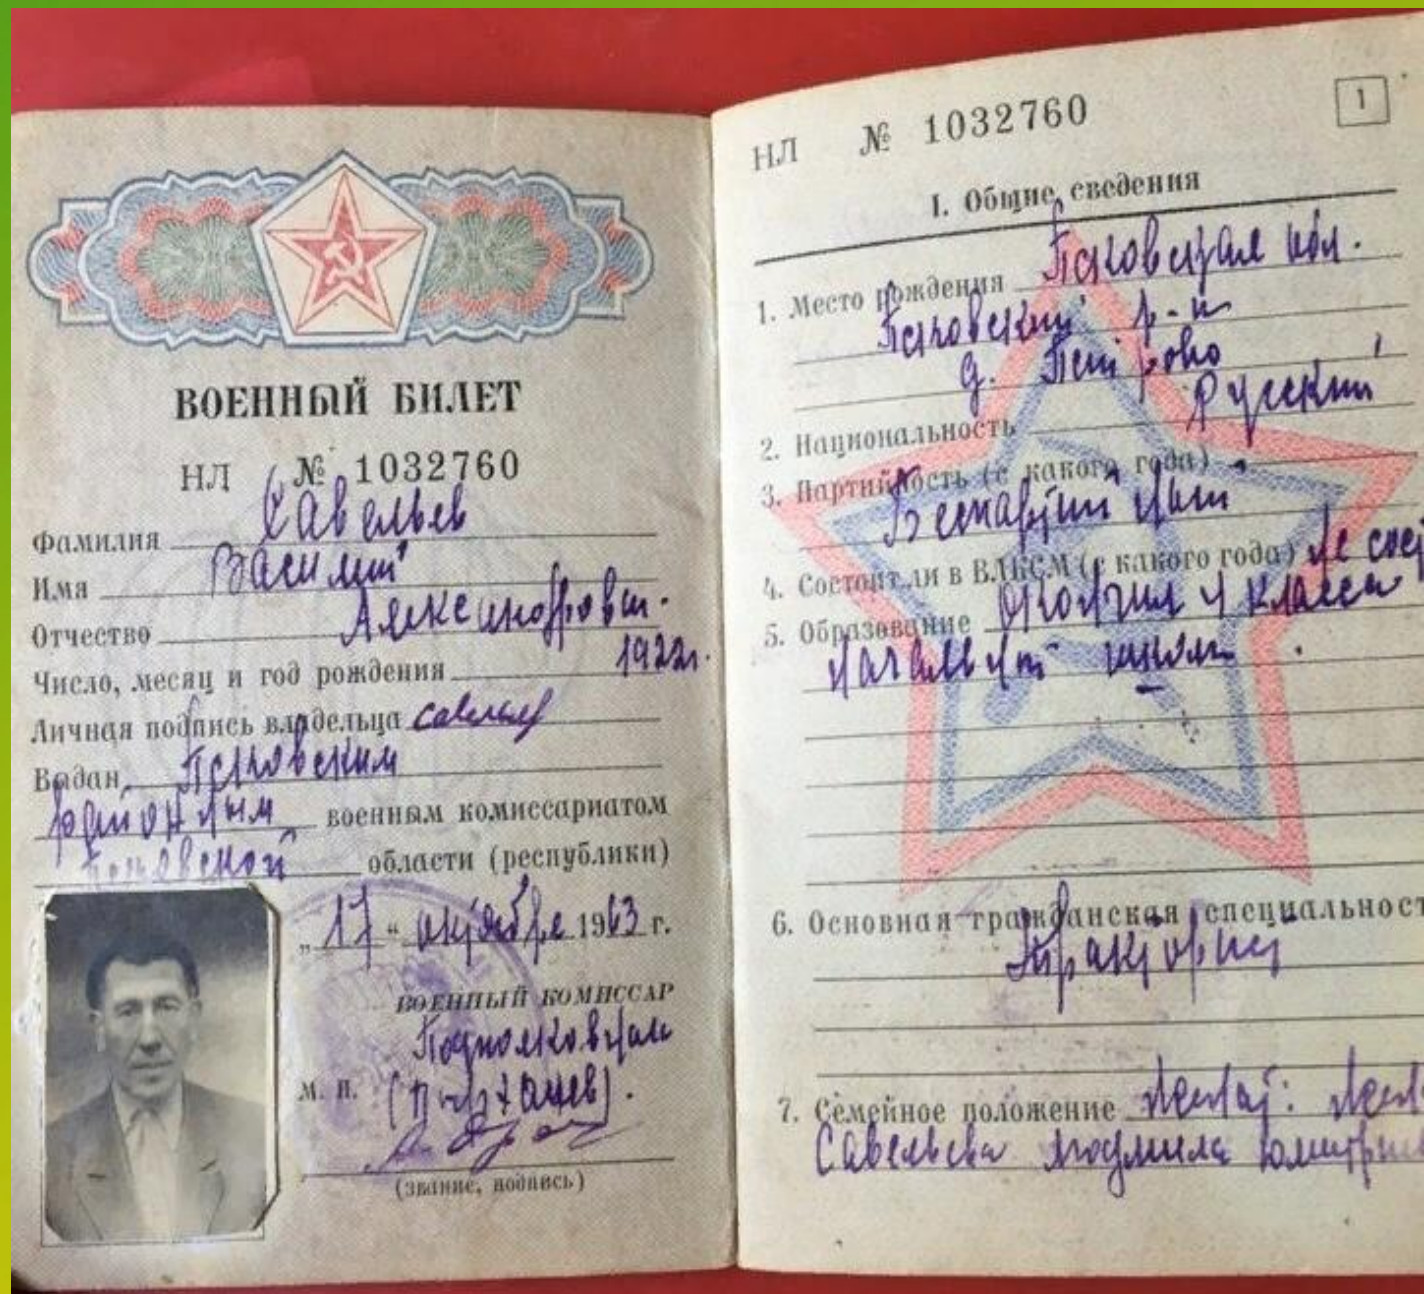 ВОЕННЫЙ БИЛЕТ
НЛ № 1032760
Фамилия Савельев
Имя Василий
Отчество Александрович.
Число, месяц и год рождения 1922г.
Личная подпись владельца
Выдан Псковским
районным военным комиссариатом
Псковской области (республики)
„17“ октября 1963 г.
ВОЕННЫЙ КОМИССАР
Подполковник
М. П.
(звание, подпись)
НЛ № 1032760
1
I. Общие сведения
1. Место рождения Псковская обл.
Псковский р-н
д. Петрово
2. Национальность Русский
3. Партийность (с какого года)
Беспартийный
4. Состоял ли в ВЛКСМ (с какого года) Не сос
5. Образование Окончил 4 класса
начальной школы.
6. Основная гражданская специальност
Тракторист
7. Семейное положение Женат:
Савельева Людмила